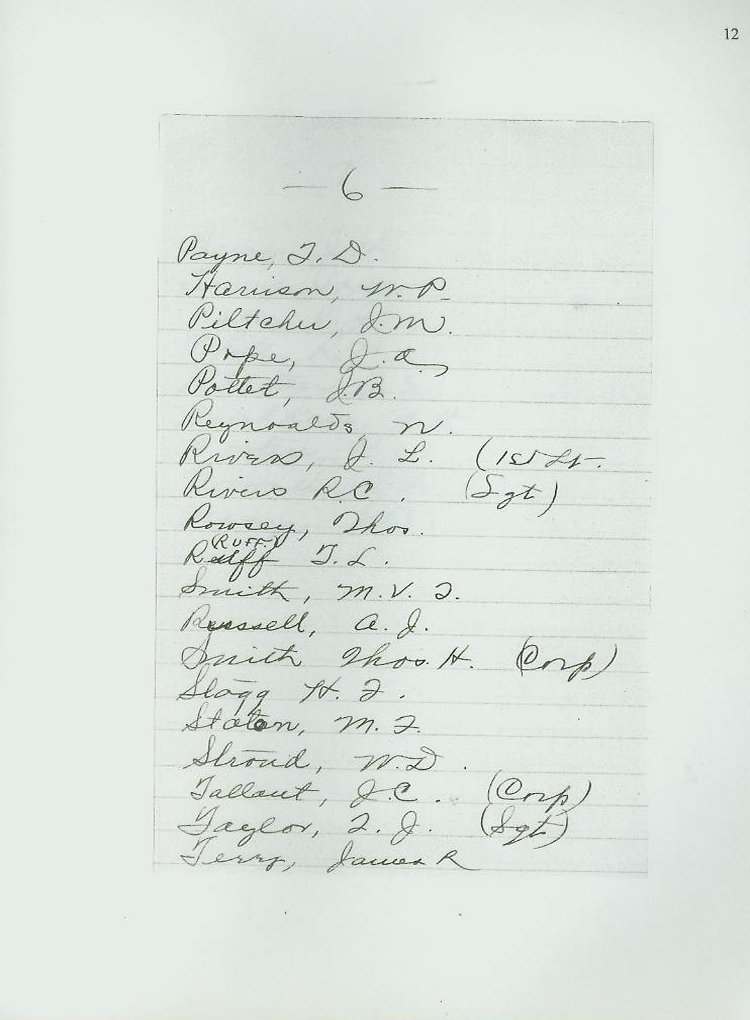 12
— 6 —
Payne, T. D.
Harrison, W. P.
Piltcher, J. M.
Pope, J. A.
Pottet, J. B.
Reynoalds, N.
Rivers, J. L. (1st Lt.
Rivers R. C. (Sgt)
Rowsey, Thos.
(RUFF)
Ruff T. L.
Smith, M. V. T.
Russell, A. J.
Smith Thos. H. (Corp)
Slagg H. F.
Staton, M. F.
Stroud, W. D.
Tallant, J. C. (Corp)
Taylor, J. (Sgt)
Terry, James R